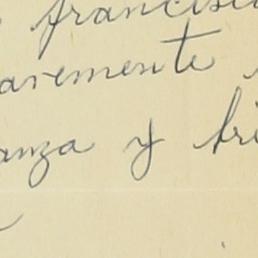 francisc
avemente
anza y bri